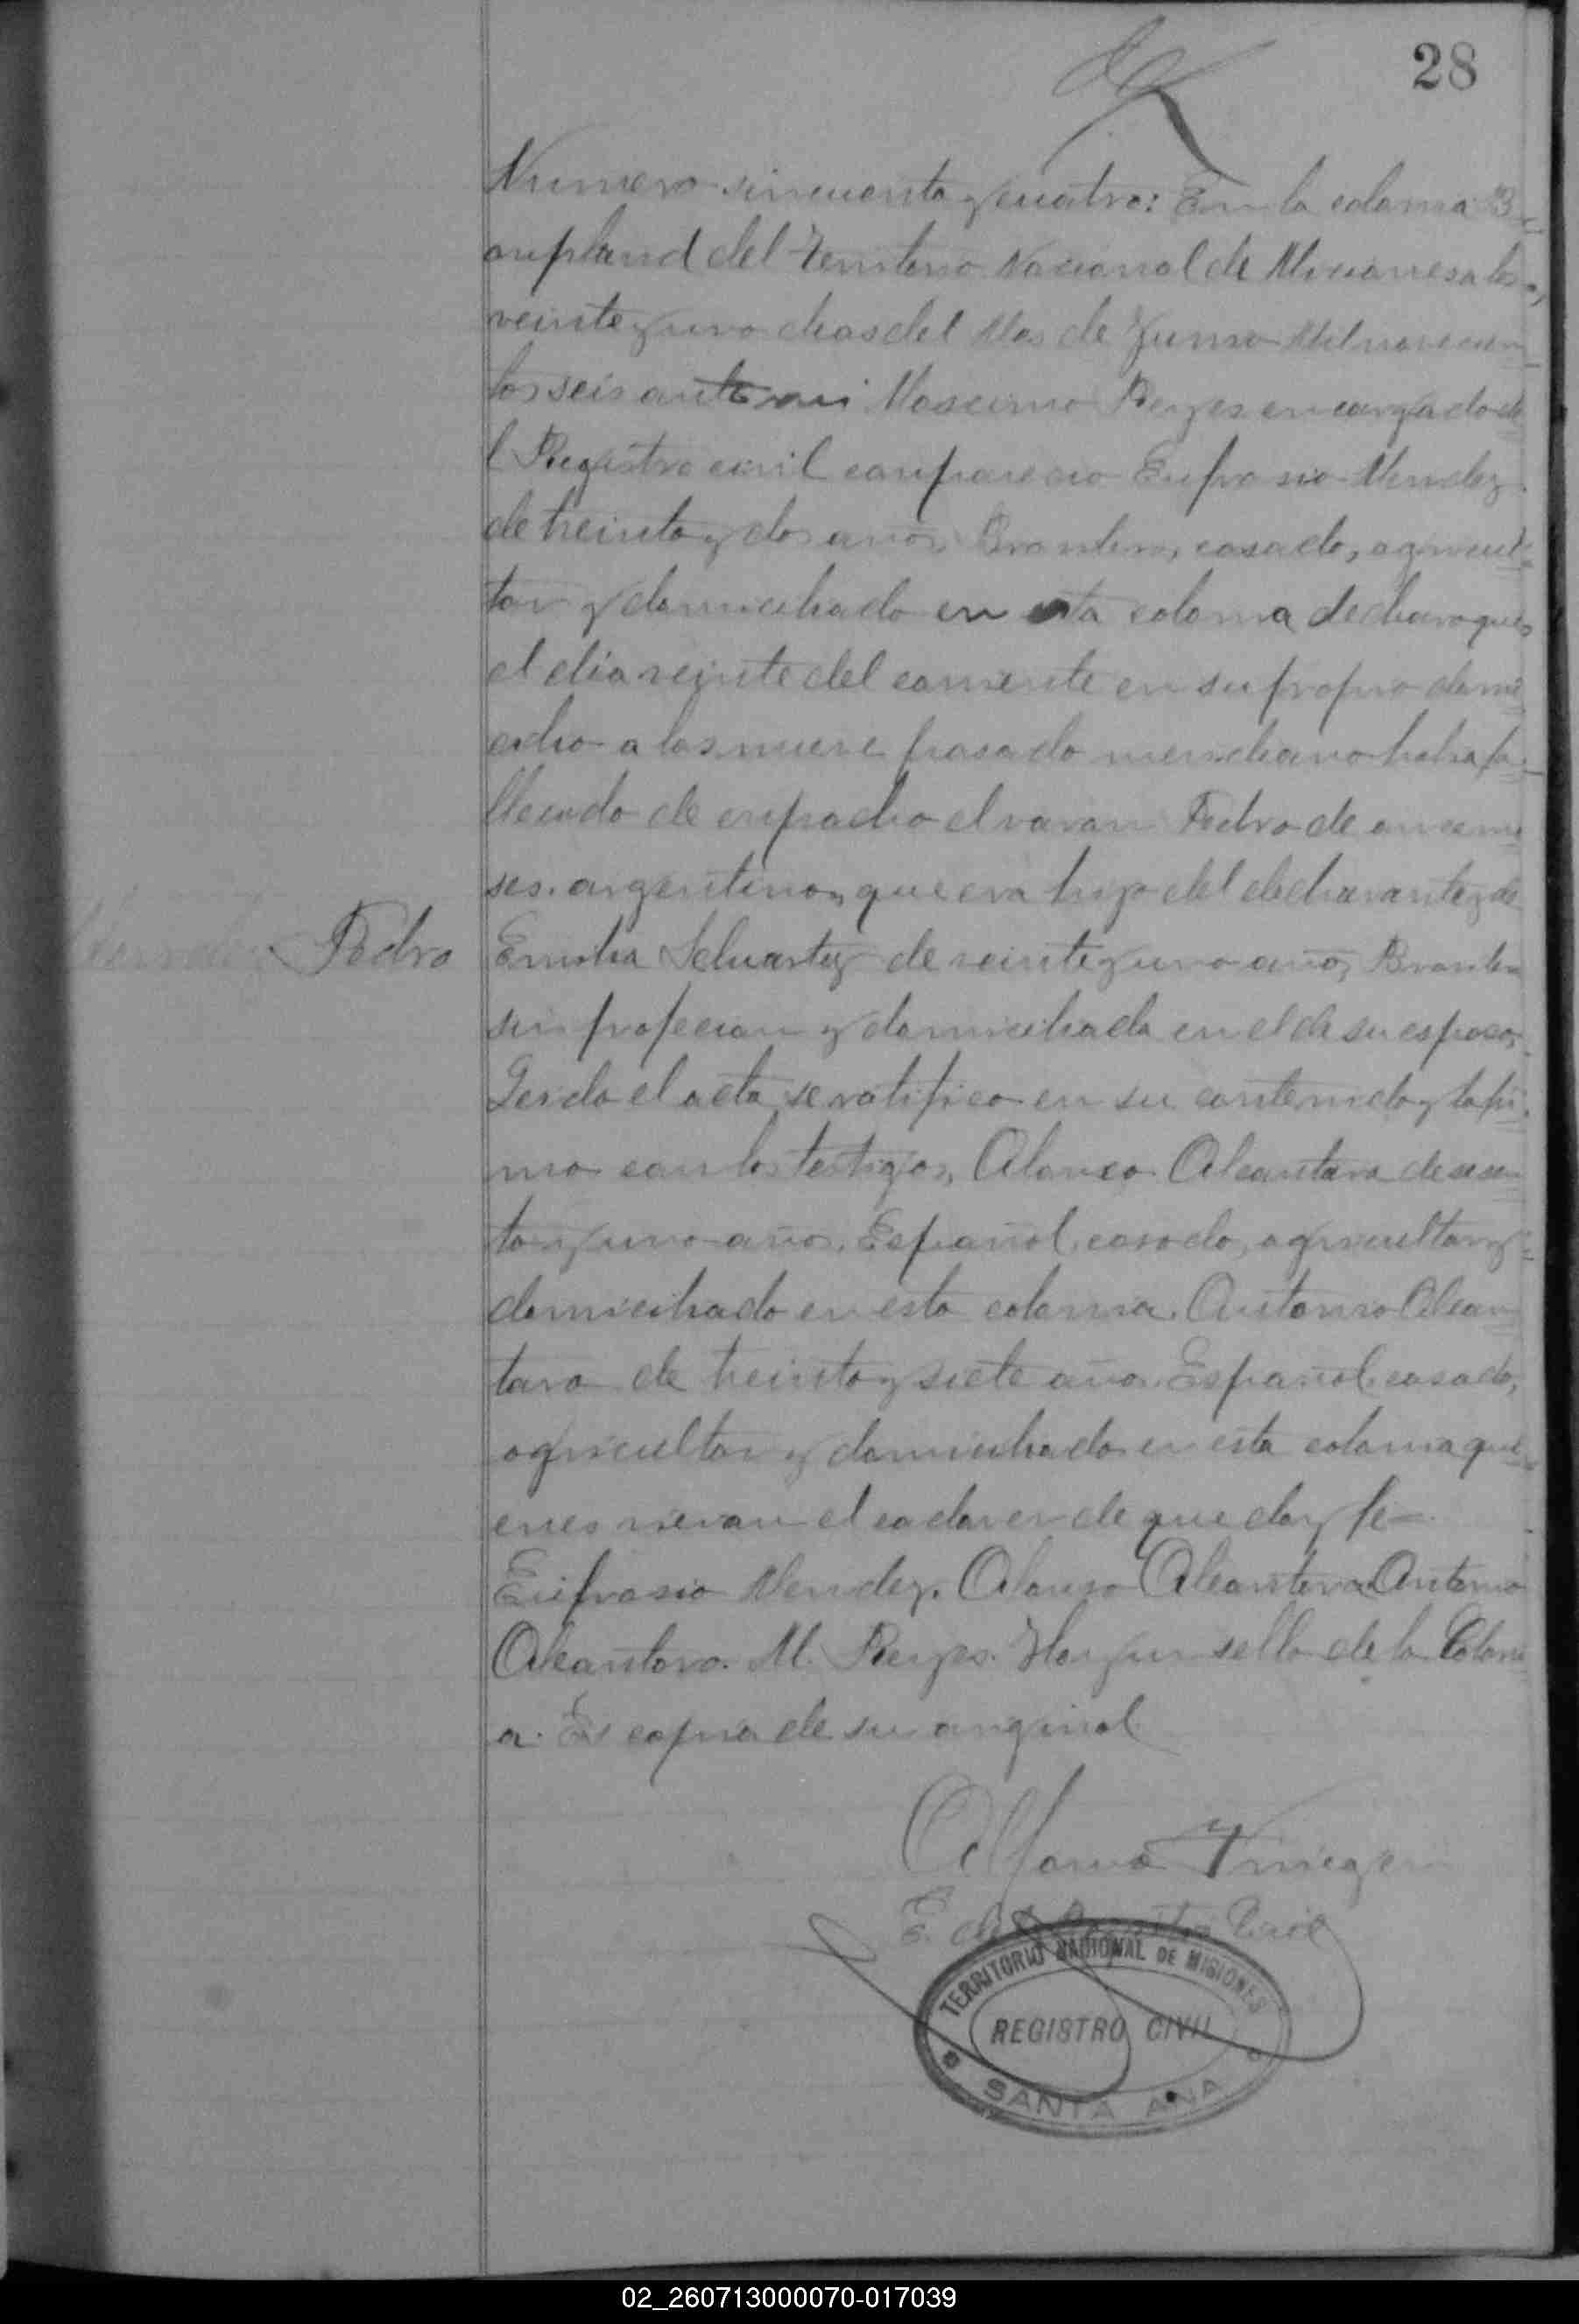 28
Numero sincuenta y cuatro: En la colonia B
onpland del Territorio Nacional de Miciones a los
veinte y uno dias del Mes de Junio Mil novecien
tos seis ante mi Maximo Reyes encargado de
l Registro civil comparecio Eufrasio Mendez
de treinta y dos años, Brasilero, casado, agricul
tor y domiciliado en esta colonia declaro que
el dia veinte del corriente en su propio domi
cilio a las nueve pasado meridiano habia fa
llecido de enpacho el varon Pedro de once me
ses. argentino, que era hijo del declarante y de
Mendez Pedro
Emilia Schuartz de veinte y uno años, Brasilera
sin profecion y domiciliada en el de su esposo,
Leida el acta se ratifico en su contenido y la fir
mo con los testigos, Alonso Alcantara de sesen
ta y uno años, Español, casado, agricultor y
domiciliado en esta colonia. Antonio Alcan
tara de treinta y siete años Español casado,
agricultor y domiciliado en esta colonia qui
enes vieron el cadaver de que doy fe
Eufrasio Mendez. Alonso Alcantara Antonio
Alcantara. M. Reyes. Hay un sello de la Coloni
a. Es copia de su original
E. del Registro Civil
TERRITORIO NACIONAL DE MISIONES
REGISTRO CIVIL
SANTA ANA
02_260713000070-017039